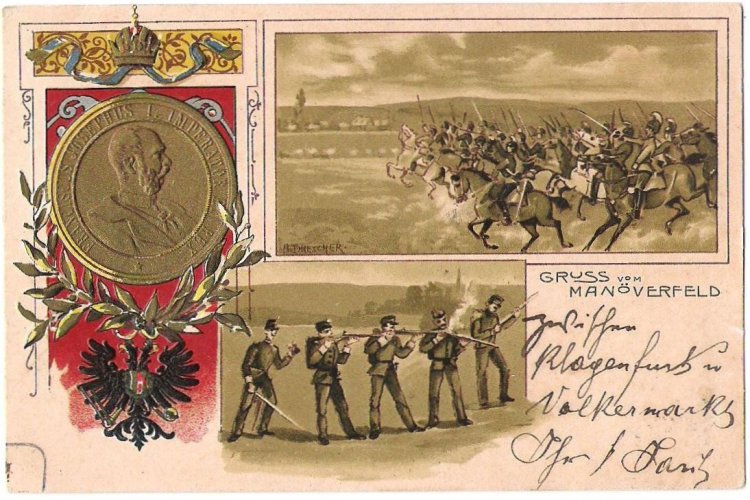 FRANCISCUS JOSEPHUS I. IMPERATOR REX
A. DRESCHER.
GRUSS VOM
MANÖVERFELD
zwischen
Klagenfurt u
Völkermarkt
Ihr